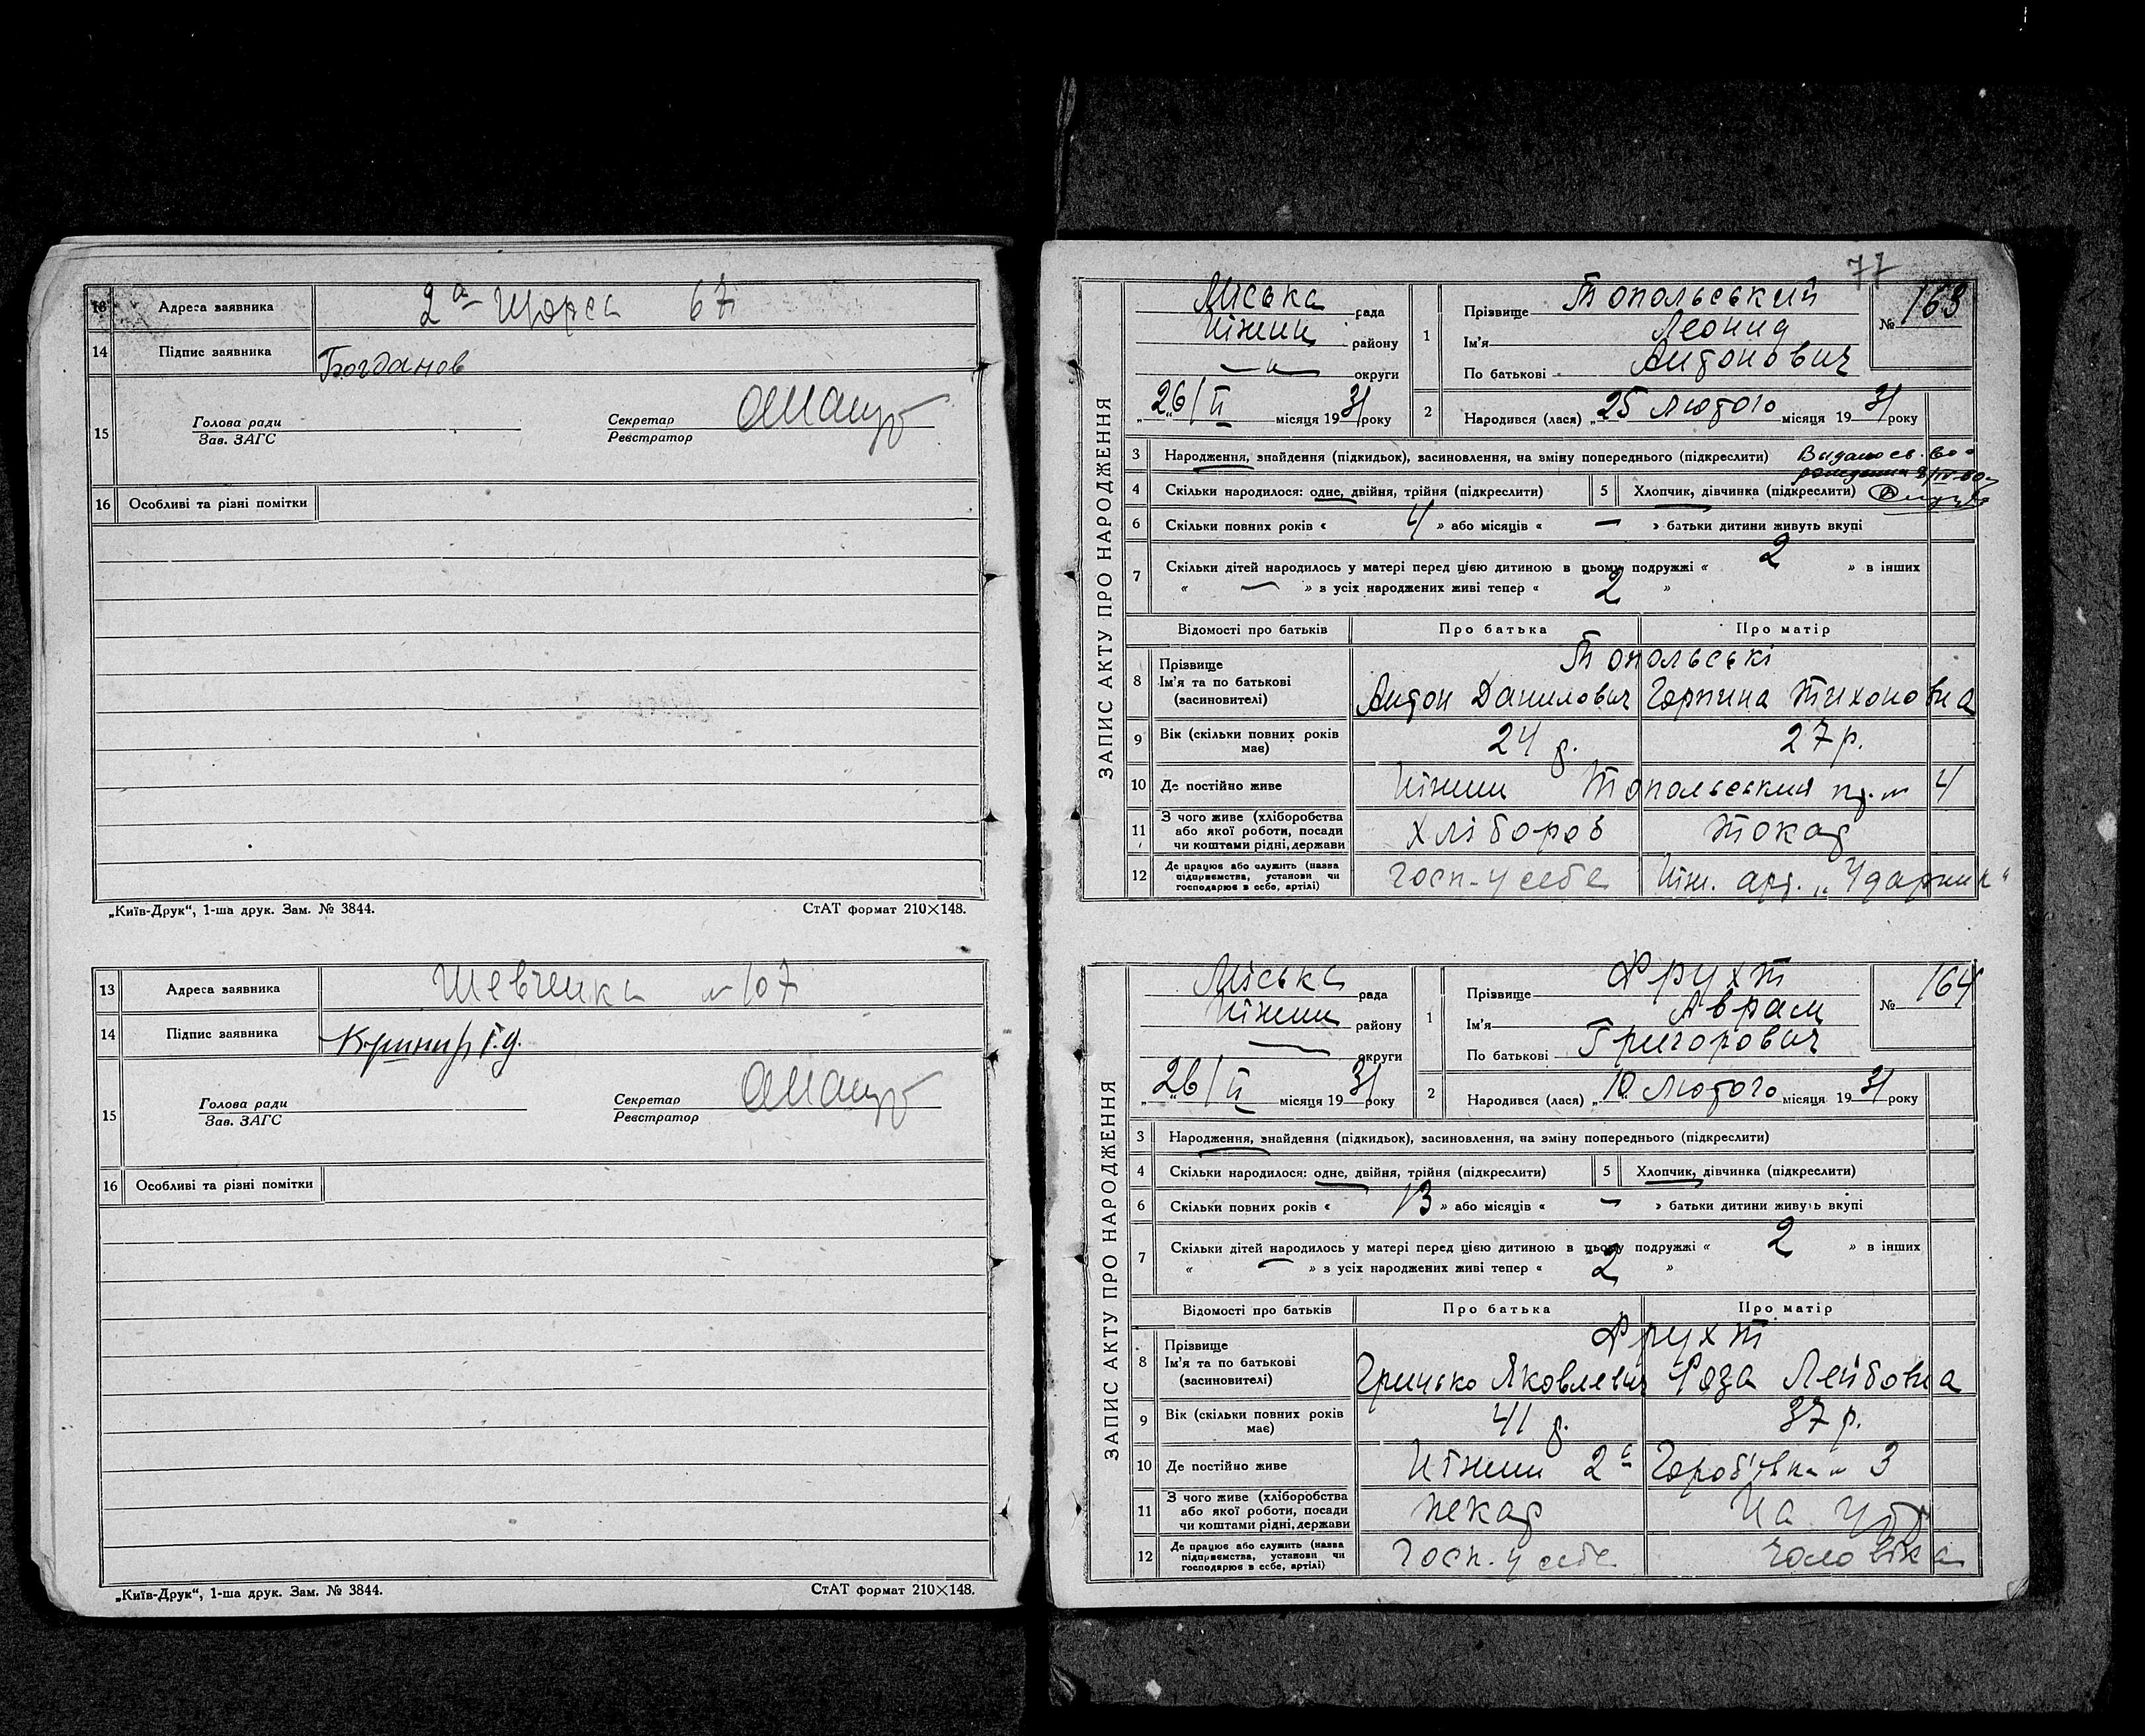 13 Адреса заявника 2а Щорса 67
14 Підпис заявника Богданов
15 Голова ради Зав. ЗАГС Секретар Реєстратор
16 Особливі та різні помітки
„Київ-Друк“, 1-ша друк. Зам. № 3844. СтАТ формат 210×148.
13 Адреса заявника Шевченка № 107
14 Підпис заявника
15 Голова ради Зав. ЗАГС Секретар Реєстратор
16 Особливі та різні помітки
„Київ-Друк“, 1-ша друк. Зам. № 3844. СтАТ формат 210×148.
77
ЗАПИС АКТУ ПРО НАРОДЖЕННЯ
Міська рада
Ніжин району
—„— округи
„26/II місяця 1931 року
1 Прізвище Топольський
Ім'я Леонид
По батькові Антонович
№ 163
2 Народився (лася) „25 Лютого місяця 1931 року
3 Народження, знайдення (підкидьок), засиновлення, на зміну попереднього (підкреслити)
4 Скільки народилося: одне, двійня, трійня (підкреслити) 5 Хлопчик, дівчинка (підкреслити)
6 Скільки повних років « 4 » або місяців « — » батьки дитини живуть вкупі
7 Скільки дітей народилось у матері перед цією дитиною в цьому подружжі « 2 » в інших
« — » з усіх народжених живі тепер « 2 »
Відомості про батьків Про батька Про матір
8 Прізвище Топольські
Ім'я та по батькові (засиновителі) Антон Данилович Горпина Тихоновна
9 Вік (скільки повних років має) 24 р. 27 р.
10 Де постійно живе Ніжин Топольський пр. № 4
11 З чого живе (хліборобства або якої роботи, посади чи коштами рідні, держави Хлібороб Токар
12 Де працює або служить (назва підприємства, установи чи господарює в себе, артілі) Госп. у себе Ніж. арт. „Ударник“
ЗАПИС АКТУ ПРО НАРОДЖЕННЯ
Міська рада
Ніжин району
— округи
„26/II місяця 1931 року
1 Прізвище Фрухт
Ім'я Аврам
По батькові Григорович
№ 164
2 Народився (лася) „10 Лютого місяця 1931 року
3 Народження, знайдення (підкидьок), засиновлення, на зміну попереднього (підкреслити)
4 Скільки народилося: одне, двійня, трійня (підкреслити) 5 Хлопчик, дівчинка (підкреслити)
6 Скільки повних років « 13 » або місяців « — » батьки дитини живуть вкупі
7 Скільки дітей народилось у матері перед цією дитиною в цьому подружжі « 2 » в інших
« — » з усіх народжених живі тепер « 2 »
Відомості про батьків Про батька Про матір
8 Прізвище Фрухт
Ім'я та по батькові (засиновителі) Грицько Яковлевич Роза Лейбовна
9 Вік (скільки повних років має) 41 р. 37 р.
10 Де постійно живе Ніжин 2а Гороб'ївка № 3
11 З чого живе (хліборобства або якої роботи, посади чи коштами рідні, держави пекар На утр
12 Де працює або служить (назва підприємства, установи чи господарює в себе, артілі) Госп. у себе чоловіка